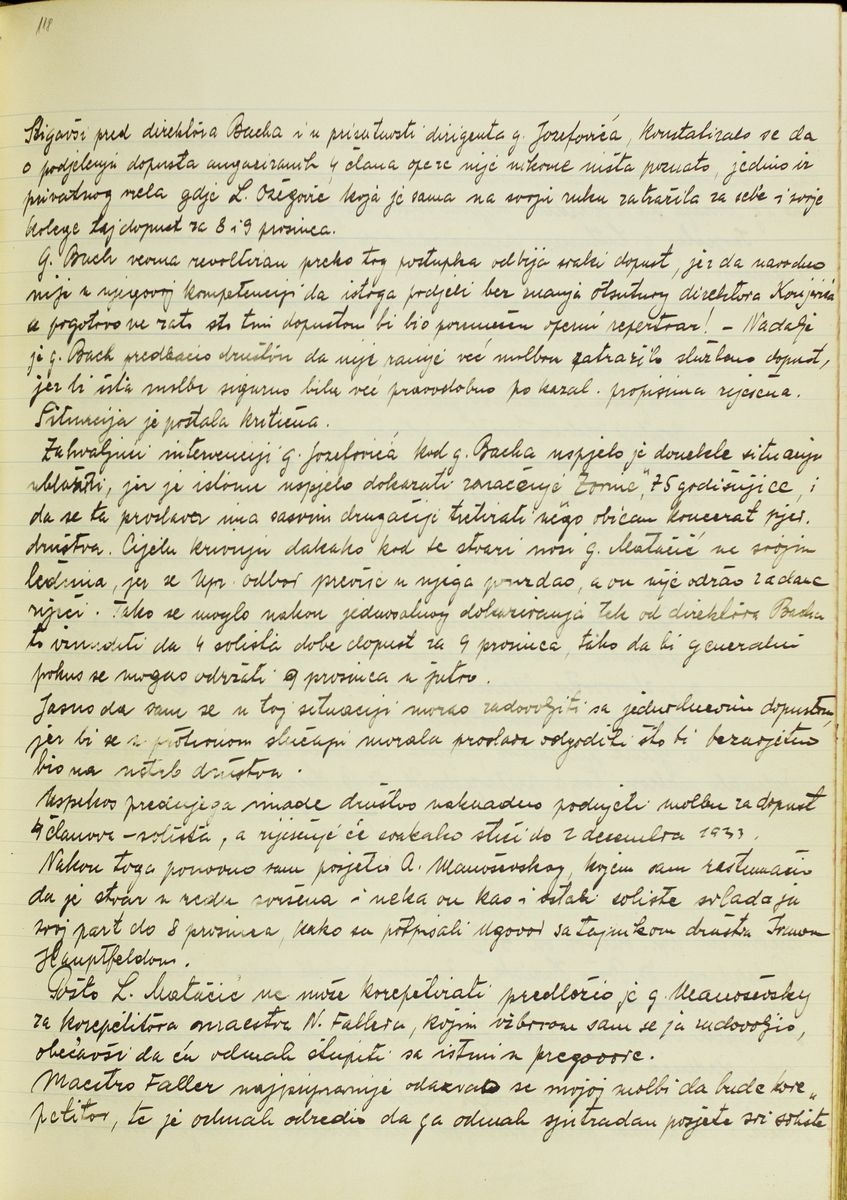 118
Stigavši pred direktora Bacha i u prisutnosti dirigenta g. Jozefovića, konstatiralo se da
o podjeljenju dopusta angaziranih 4 člana opere nije nikome ništa poznato, jedino iz
privatnog vrela gdje L. Ožegović koja je sama na svoju ruku zatražila za sebe i svoje
kolege taj dopust za 8 i 9 prosinca.
G. Bach veoma revoltiran preko tog postupka odbija svaki dopust, jer da navodno
nije u njegovoj kompetenciji da istoga podjeli bez znanja otsutnog direktora Konjovića
a pogotovo ne zato što tim dopustom bi bio poremećen operni repertoar! – Nadalje
je g. Bach predbacio društvu da nije ranije već molbom zatražilo službeno dopust,
jer bi ista molba sigurno bila već pravodobno po kazal. propisima riješena.
Situacija je postala kritična.
Zahvaljući intervenciji g. Jozefovića kod g. Bacha uspjelo je donekle situaciju
ublažiti, jer je istome uspjelo dokazati značenje "Zorine" 75 godišnjice, i
da se ta proslava ima sasvim drugačije tretirati nego običan koncerat pjev.
društva. Cijelu krivnju dakako kod te stvari nosi g. Matačić na svojim
leđima, jer se Upr. odbor previše u njega pouzdao, a on nije održao zadane
riječi. Tako se moglo nakon jednosatnog dokazivanja tek od direktora Bacha
to iznuditi da 4 solista dobe dopust za 9 prosinca, tako da bi generalni
pokus se mogao održati 9 prosinca u jutro.
Jasno da sam se u toj situaciji morao zadovoljiti sa jednodnevnim dopustom,
jer bi se u protivnom slučaju morala proslava odgoditi što bi bezuvjetno
bio na uštrb društva.
Uspikos predujega imade društvo naknadno podnjeti molbu za dopust
4 članova – solista, a riješenje će svakako stići do 2 decembra 1933.
Nakon toga ponovno sam posjetio A. Manoševskog, kojem sam rastumačio
da je stvar u redu svršena i neka on kao i ostali soliste svladaju
svoj part do 8 prosinca, kako su potpisali Ugovor sa tajnikom društva Ivanom
Hauptfeldom.
Pošto L. Matačić ne može korepetirati predložio je g. Manoševsky
za korepetitora maestra N. Fallera, kojim izborom sam se ja zadovoljio,
obećavši da ću odmah stupiti sa istim u pregovore.
Maestro Faller najpripravnije odazvao se mojoj molbi da bude kore„
petitor, te je odmah odredio da ga odmah sjutradan posjete svi soliste